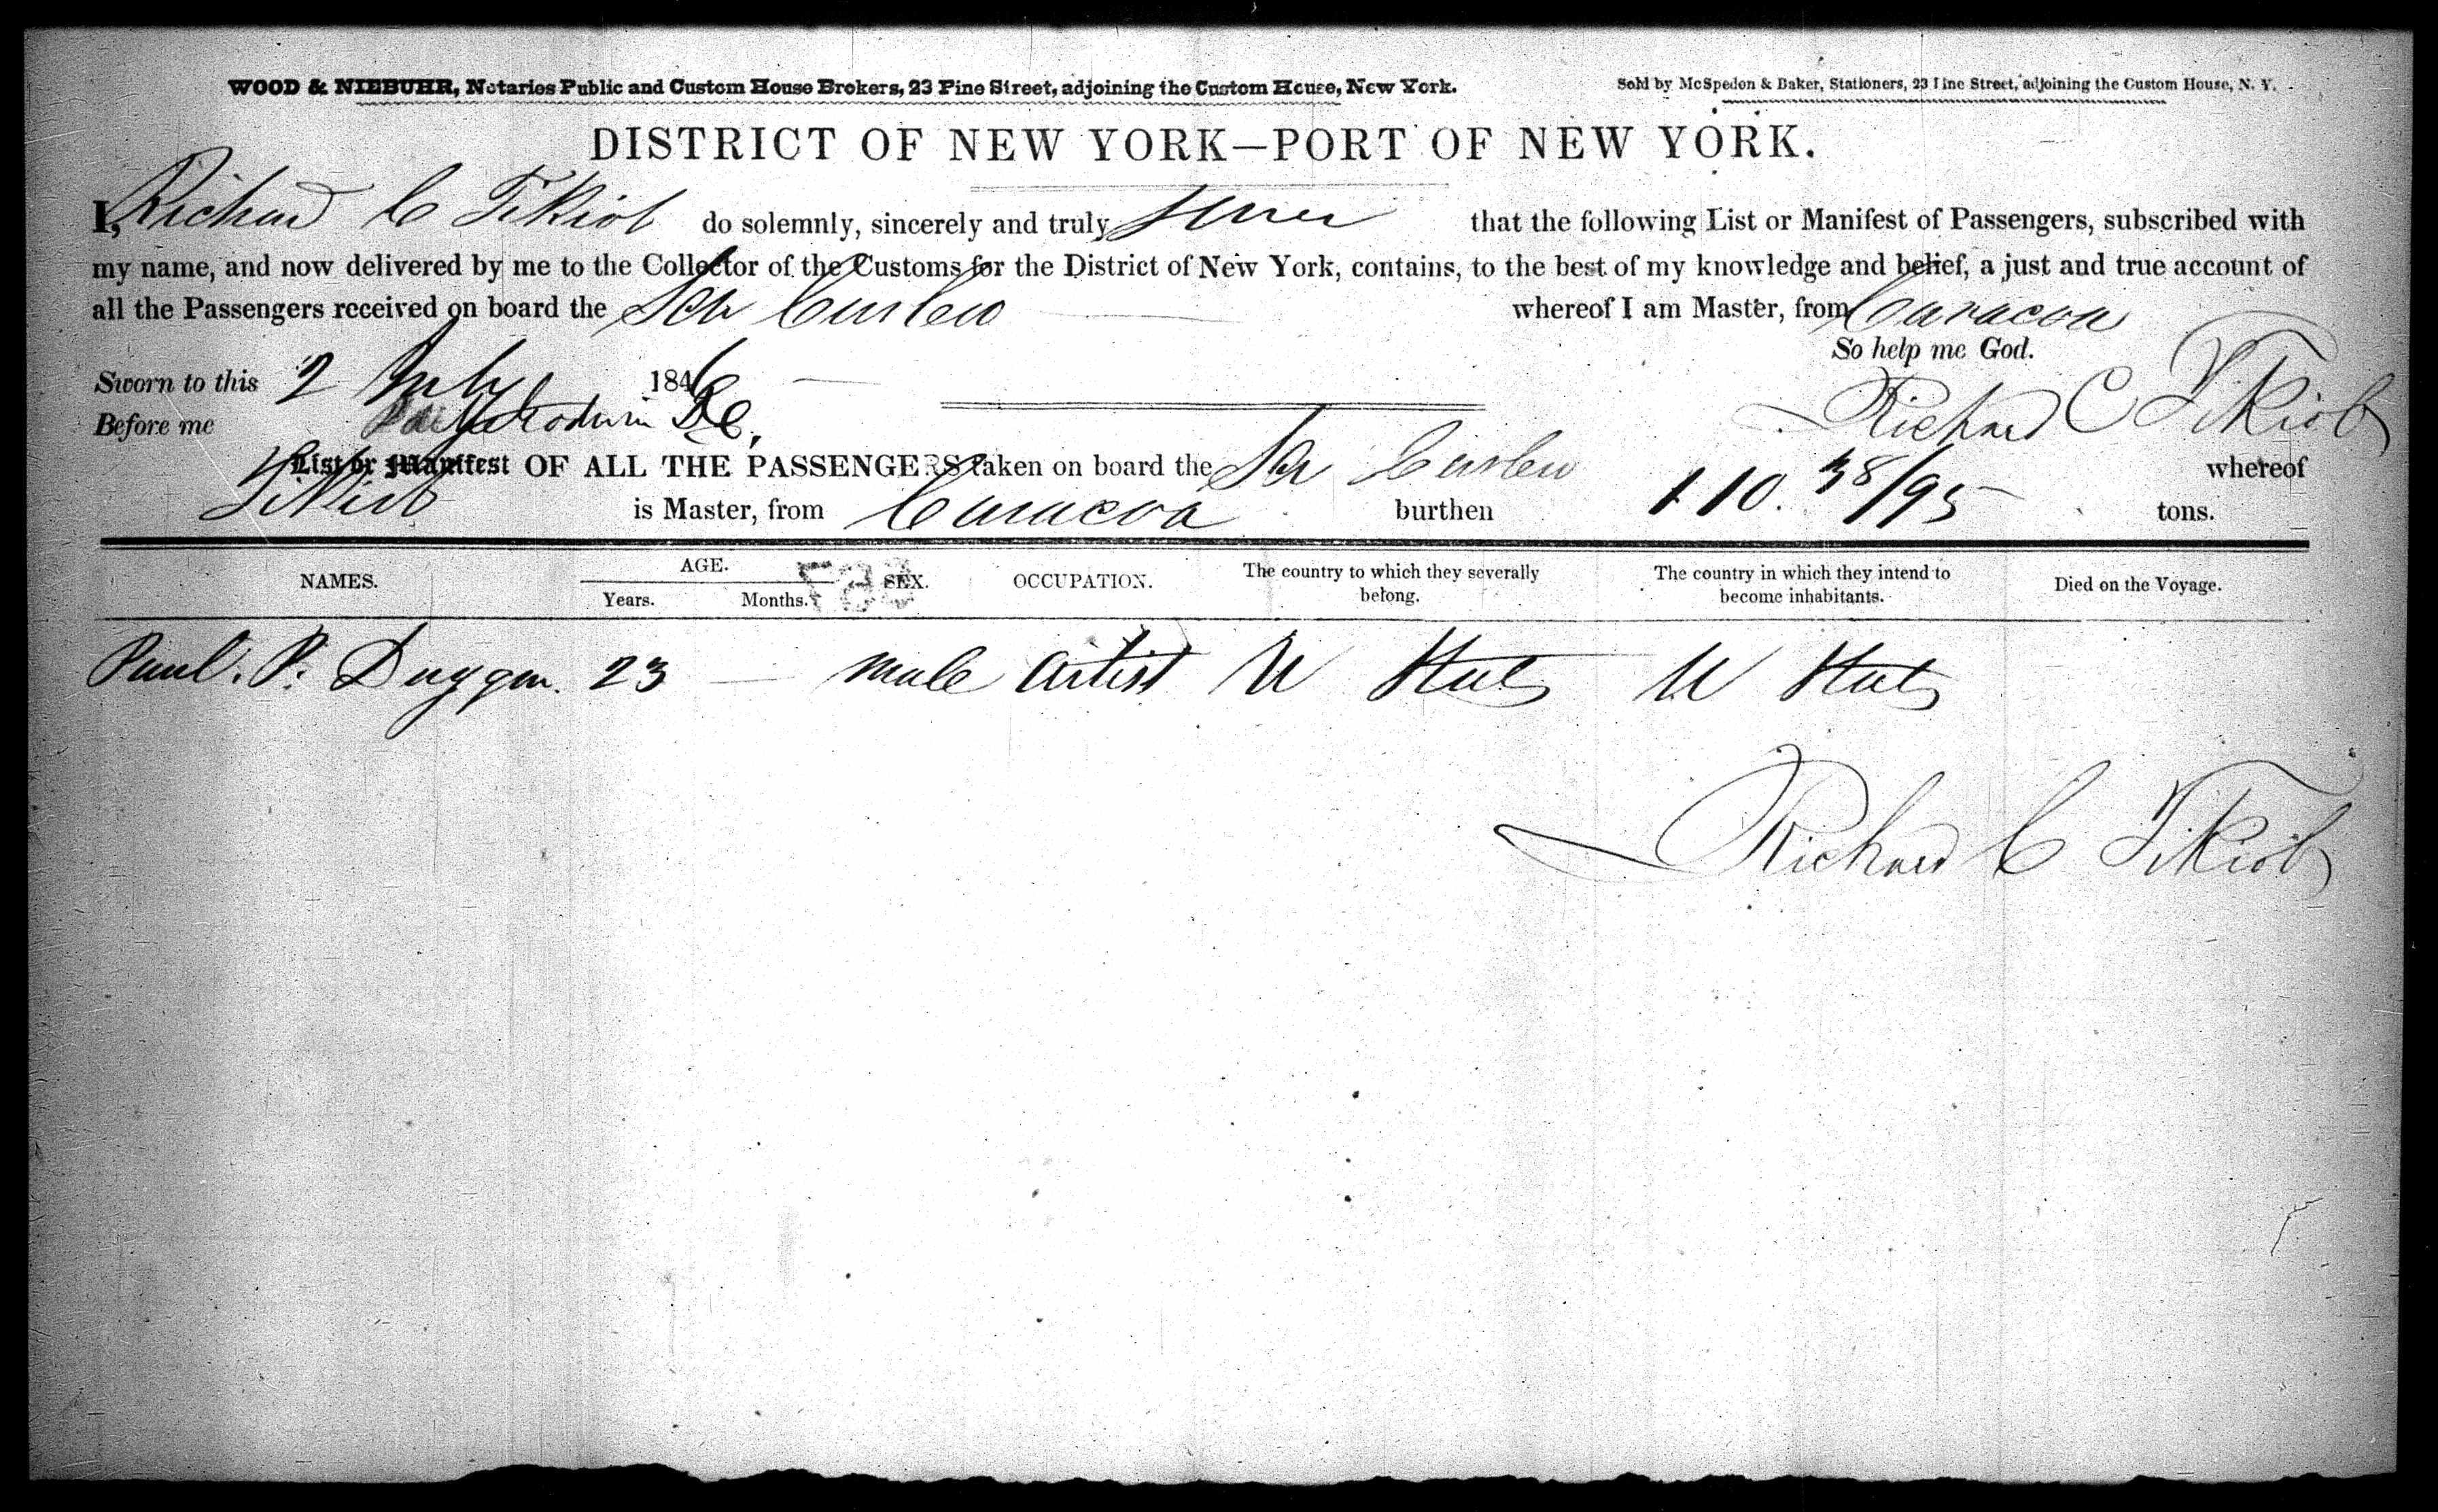 WOOD & NIEBUHR, Notaries Public and Custom House Brokers, 23 Pine Street, adjoining the Custom House, New York.
Sold by McSpedon & Baker, Stationers, 23 Pine Street, adjoining the Custom House, N. Y.
DISTRICT OF NEW YORK—PORT OF NEW YORK.
I, Richard C do solemnly, sincerely and truly swear that the following List or Manifest of Passengers, subscribed with
my name, and now delivered by me to the Collector of the Customs for the District of New York, contains, to the best of my knowledge and belief, a just and true account of
all the Passengers received on board the Sch Curlew whereof I am Master, from Curacoa
So help me God.
Sworn to this 2 July 1846
Richard C
Before me
List or Manifest OF ALL THE PASSENGERS taken on board the Sch Curlew whereof
is Master, from Curacoa burthen 110. 38/95 tons.
NAMES. AGE. Years. Months. SEX. OCCUPATION. The country to which they severally belong. The country in which they intend to become inhabitants. Died on the Voyage.
Paul. P. Duggan. 23 — male artist U States U States
Richard C